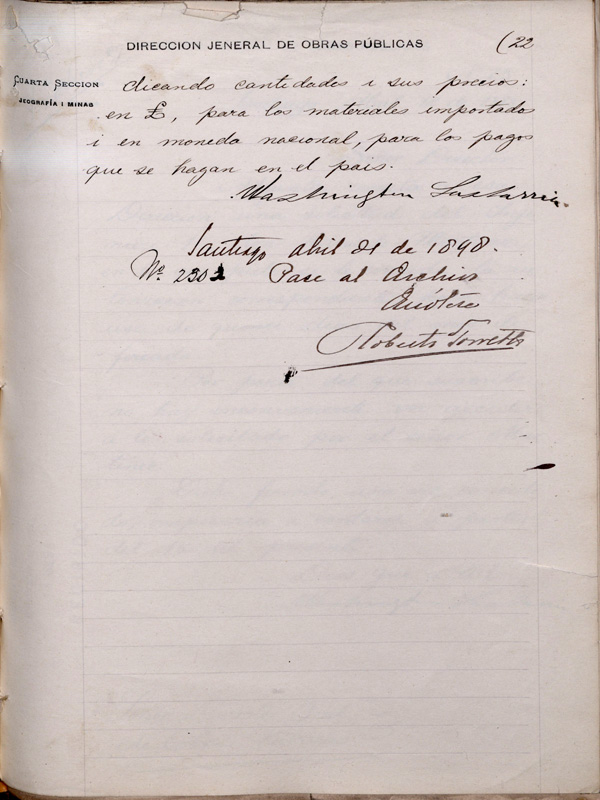 DIRECCION JENERAL DE OBRAS PÚBLICAS (22
CUARTA SECCION
JEOGRAFÍA I MINAS
dicando cantidades i sus precios:
en £, para los materiales importados
i en moneda nacional, para los pagos
que se hagan en el pais.
Washington Lastarria.
Santiago abril 21 de 1898.
Nº 2302 Pase al Archivo
Anótese
Roberto Torretti